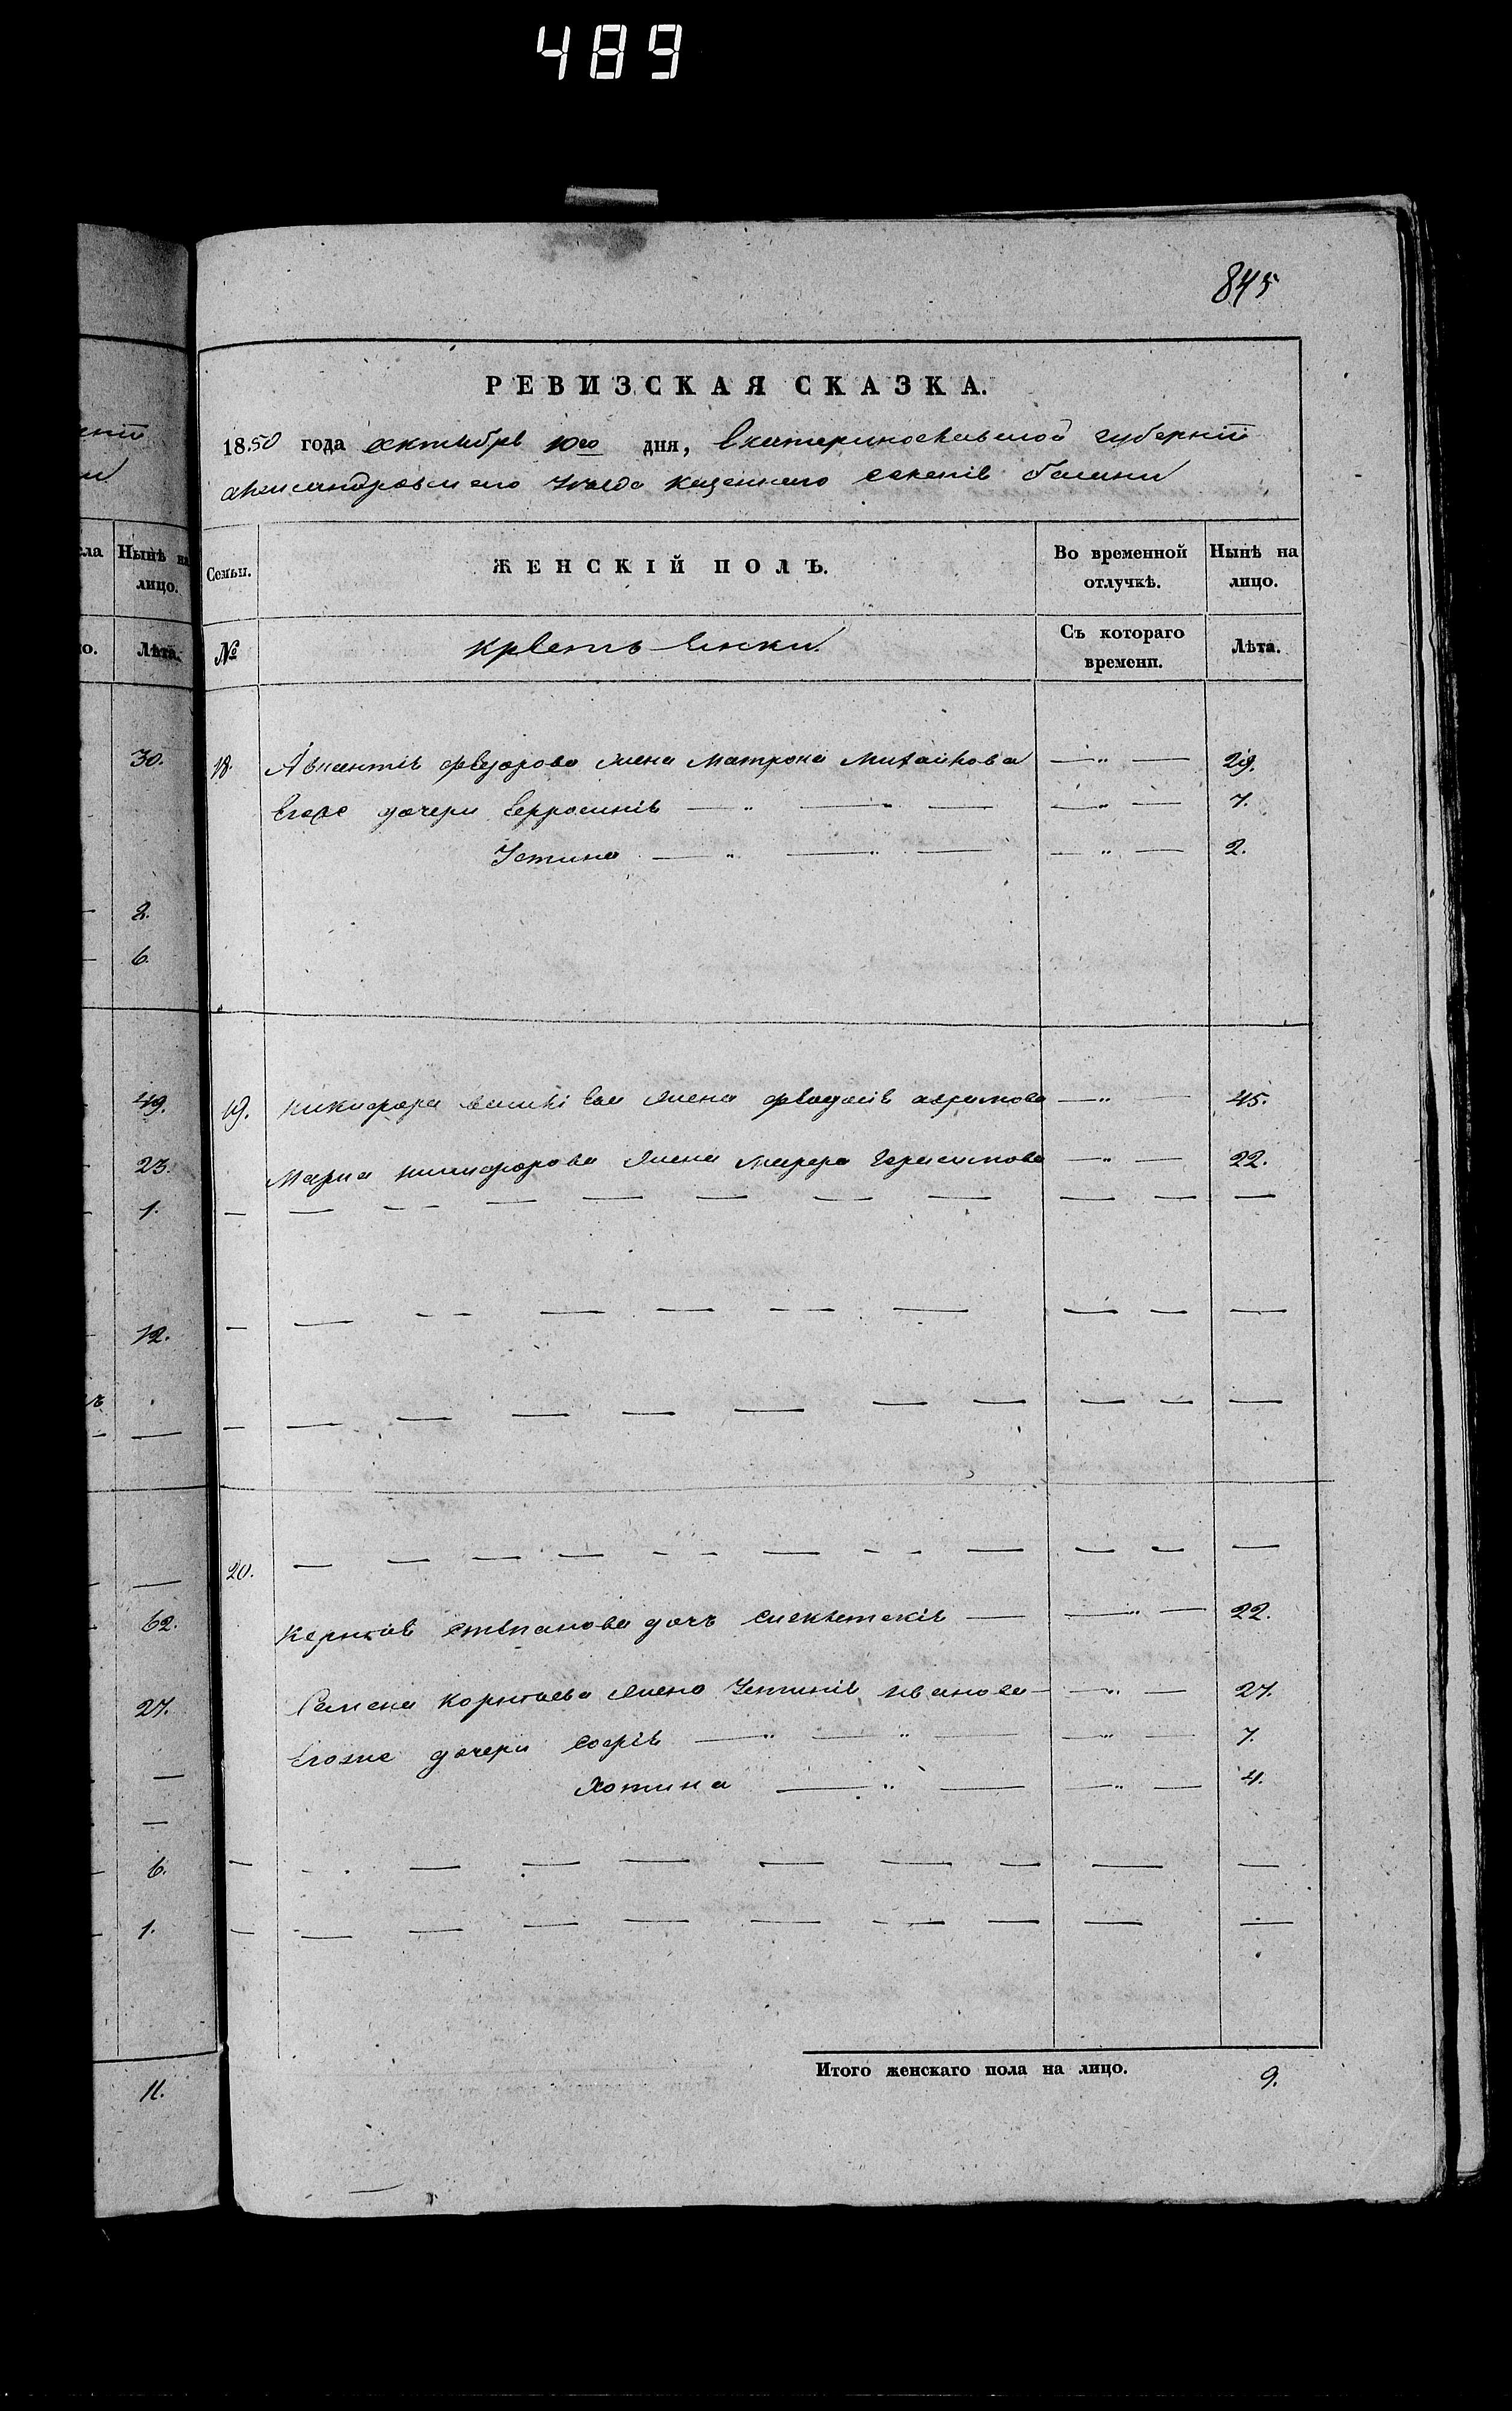 489
845
РЕВИЗСКАЯ СКАЗКА.
1850 года октября 10го дня, Екатеринославской губернiи
Александровскаго уезда казеннаго селенiя
ла Нынѣ на лицо.
Семьи.
ЖЕНСКIЙ ПОЛЪ.
Во временной отлучкѣ.
Нынѣ на лицо.
о. Лѣта.
№
Съ котораго времени.
Лѣта.
30. 18. Авксентiя федорова жена Матрона Михайлова — " — 29.
Егоже дочери Ефросинiя — " — " — — " — 7.
Устина — " — " — — " — 2.
8.
6.
49. 19. никифора жена федосiя — " — 45.
23. Марка никифорова жена Герасимова — " — 22.
1. — — — — — — — — — — —
12. — — — — — — — — — —
— — — — — — — — — — —
20. — — — — — — — — — — —
62. Корнѣя степанова дочь — — " — 22.
27. Семена Корнѣева жена Устинiя иванова — — " — 27.
Егоже дочери софiя — " — " — — " — 7.
— Хотина — " — — " — 4.
—
6. — — — — — — — — — —
1. — — — — — — — — — —
11.
Итого женскаго пола на лицо. 9.